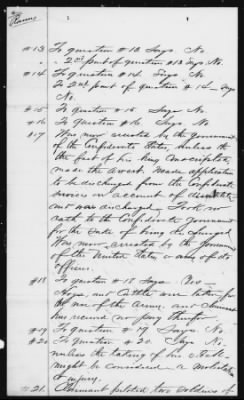 #13 To question #13 Says No
" 2nd part of question #13 Says No.
#14 To question #14. Says No
To 2nd part of question #14 Says
No.
#15 To question #15. Says No
#16 To question #16 Says. No.
#17 Was never arrested by the government
of the Confederate States, unless th
the fact of his being Conscripted,
made the arrest. Made application
to be discharged from the Confederate
service on account of
and was discharged. Took
oath to the Confederate Government
for the sake of being discharged
Was never arrested by the Government
of the United States or any of its
officers.
#18 To question #18 Says. Yes—
Hogs, and Cattle were taken for
the use of the Army. and Claimant
has received no pay therefor
#19 To question #19 Says. No.
#20 To question #20. Says No,
unless the taking of his Stock
might be considered a molestation
or injury.
#21. Claimant piloted two soldiers of